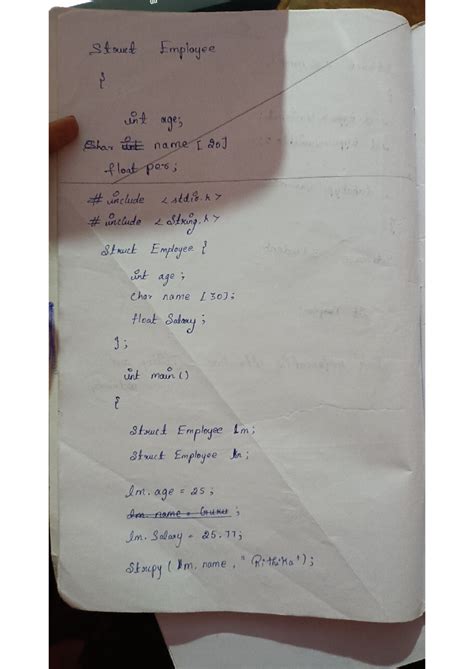 Struct Employee
{
int age;
Char int name [20]
float per;
# include <stdio.h>
# include <String.h>
Struct Employee {
int age ;
Char name [30];
float Salary ;
};
int main ()
{
Struct Employee lm ;
Struct Employee ln ;
lm. age = 25 ;
lm. name = Guru ;
lm. Salary = 25.77;
Strcpy ( lm. name , "Rithika");